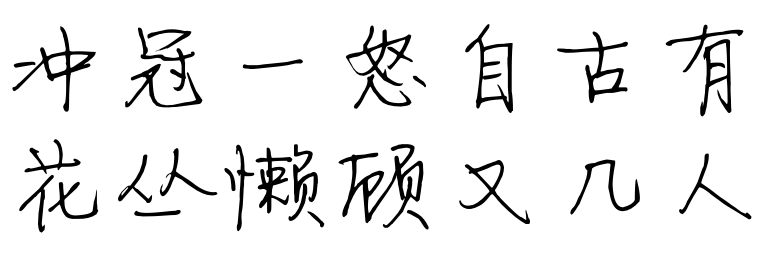 冲冠一怒自古有
花丛懒顾又几人